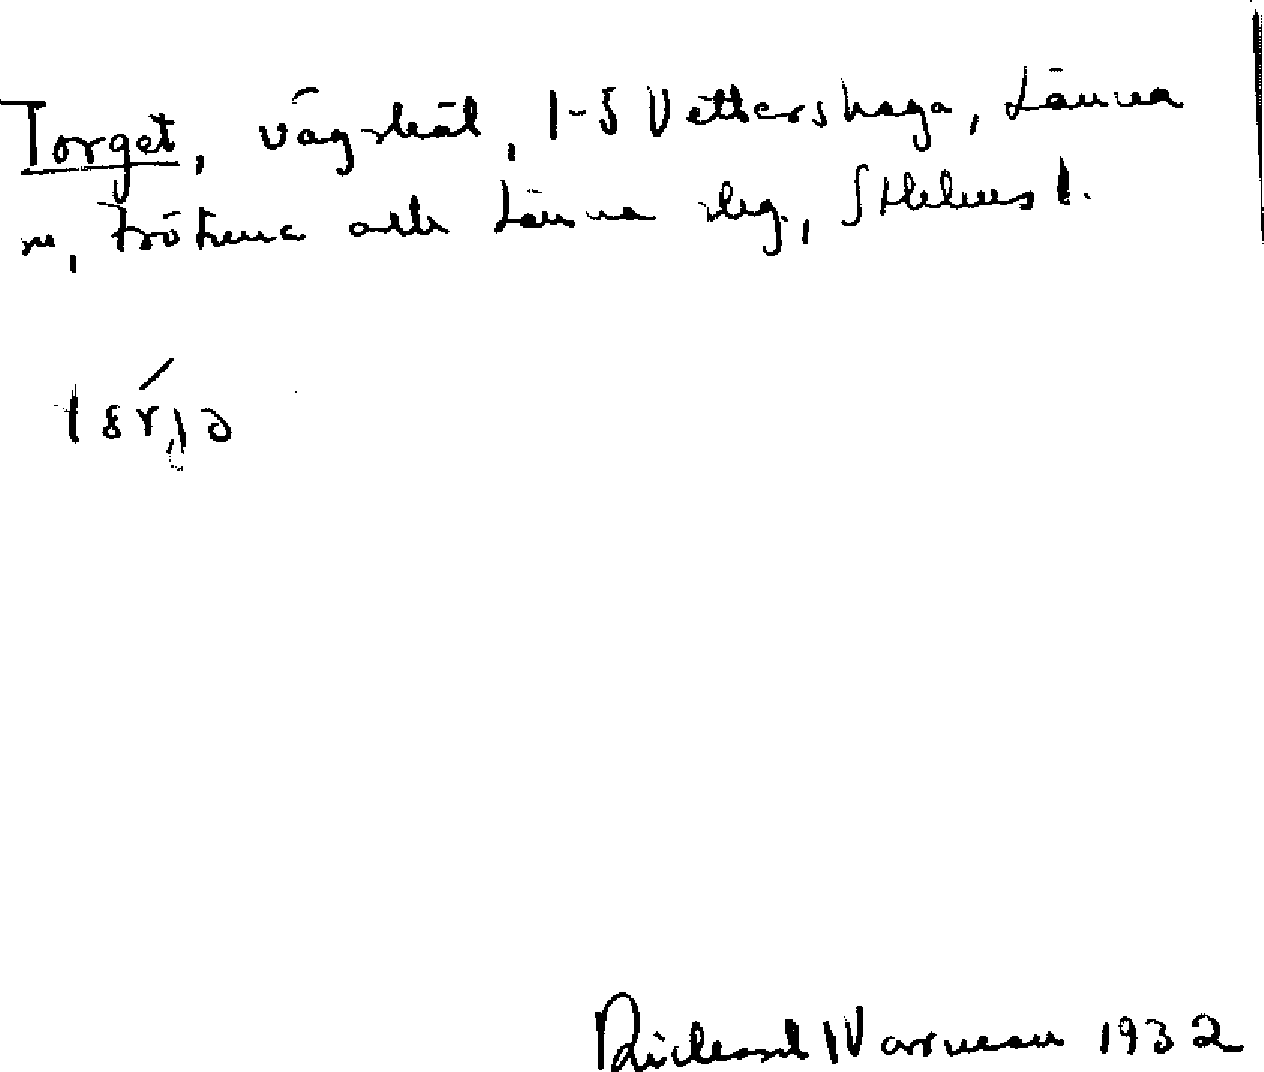 Torget, vägskäl, 1-5 Vettershaga, Länna
sn, Frötuna och Länna skg., Sthlms l.
Richard Norrman 1932